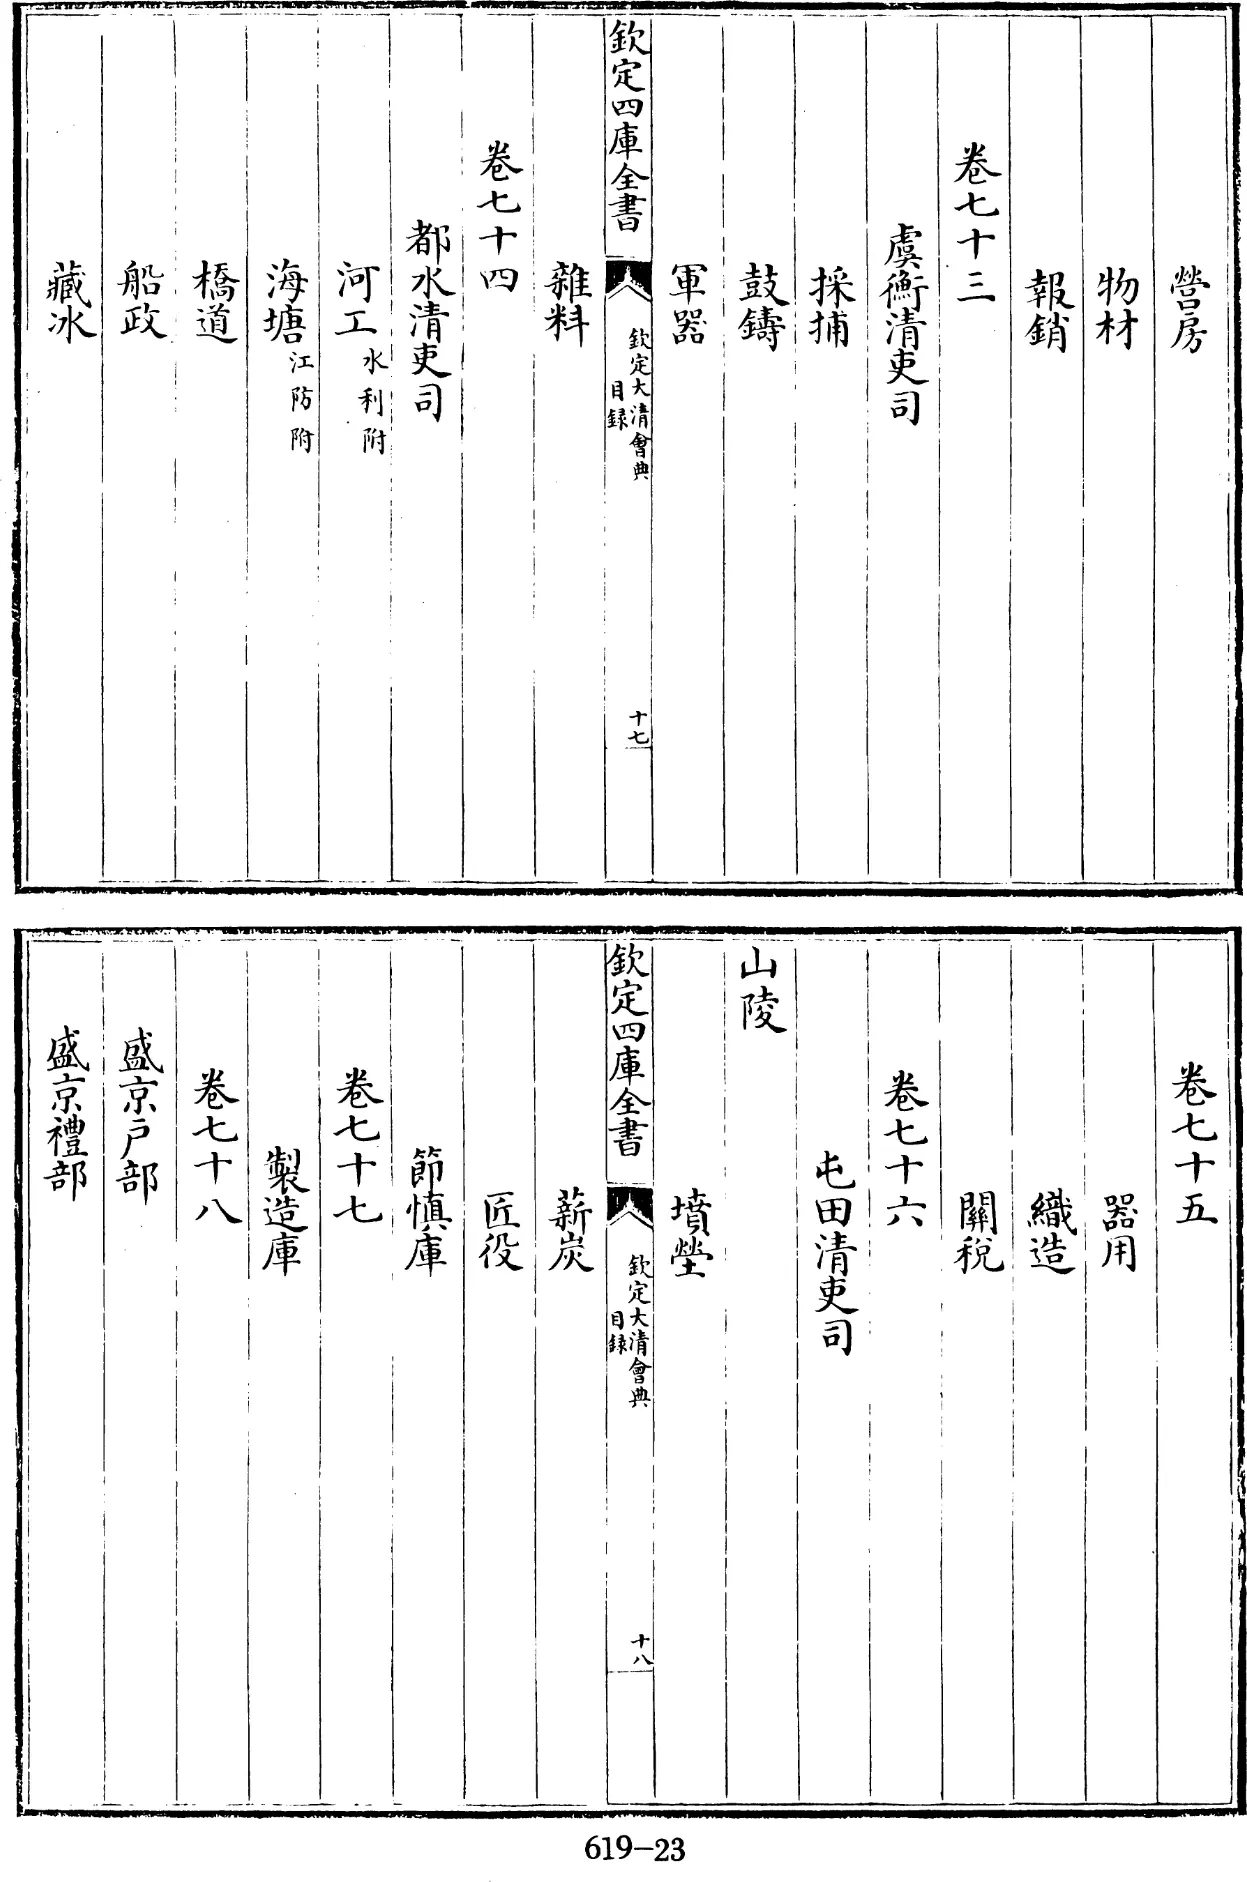 營房
物材
報銷
卷七十三
虞衡清吏司
採捕
鼓鑄
軍器
欽定四庫全書
欽定大清會典
目録
十七
雜料
卷七十四
都水清吏司
河工水利附
海塘江防附
橋道
船政
藏冰
卷七十五
器用
織造
關稅
卷七十六
屯田清吏司
山陵
墳塋
欽定四庫全書
欽定大清會典
目録
十八
薪炭
匠役
節慎庫
卷七十七
製造庫
卷七十八
盛京戶部
盛京禮部
619-23